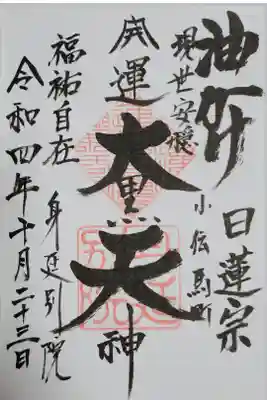 油かけ
日蓮宗
現世安穏
小伝馬町
開運
大黒天
神
福祐自在
身延別院
令和四年十月二十三日